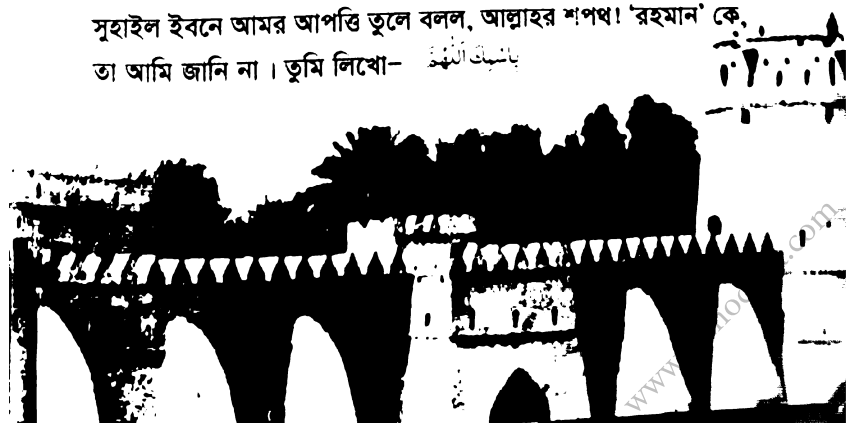 সুহাইল ইবনে আমর আপত্তি তুলে বলল, আল্লাহর শপথ! 'রহমান' কে,
তা আমি জানি না । তুমি লিখো- بِاسْمِكَ اللّٰهُمَّ